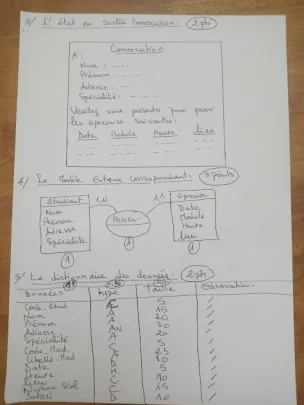 3/ L'état en sortie Convocation: 2pts
Convocation
A:
Nom: ----
Prénom: ----
Adresse: ----
Spécialité: ----
Veuillez vous présenter pour passer
les épreuves suivantes:
Date Module Heure lieu
4/ Le Modèle Externe correspondant: 3 points
Etudiant
Nom
Prénom
Adresse
Spécialité
1,N
Passer
1,1
Epreuve
Date
Module
Heure
lieu
5/ Le dictionnaire des données: 2pts
Données Type Taille Observation
Code_étud 5
Nom A 15
Prénom A 20
Adresse AN 30
Spécialité A 20
Code_Mod 5
Libellé_Mod A 25
Date D 10
Heure H 5
lieu 10
15
10